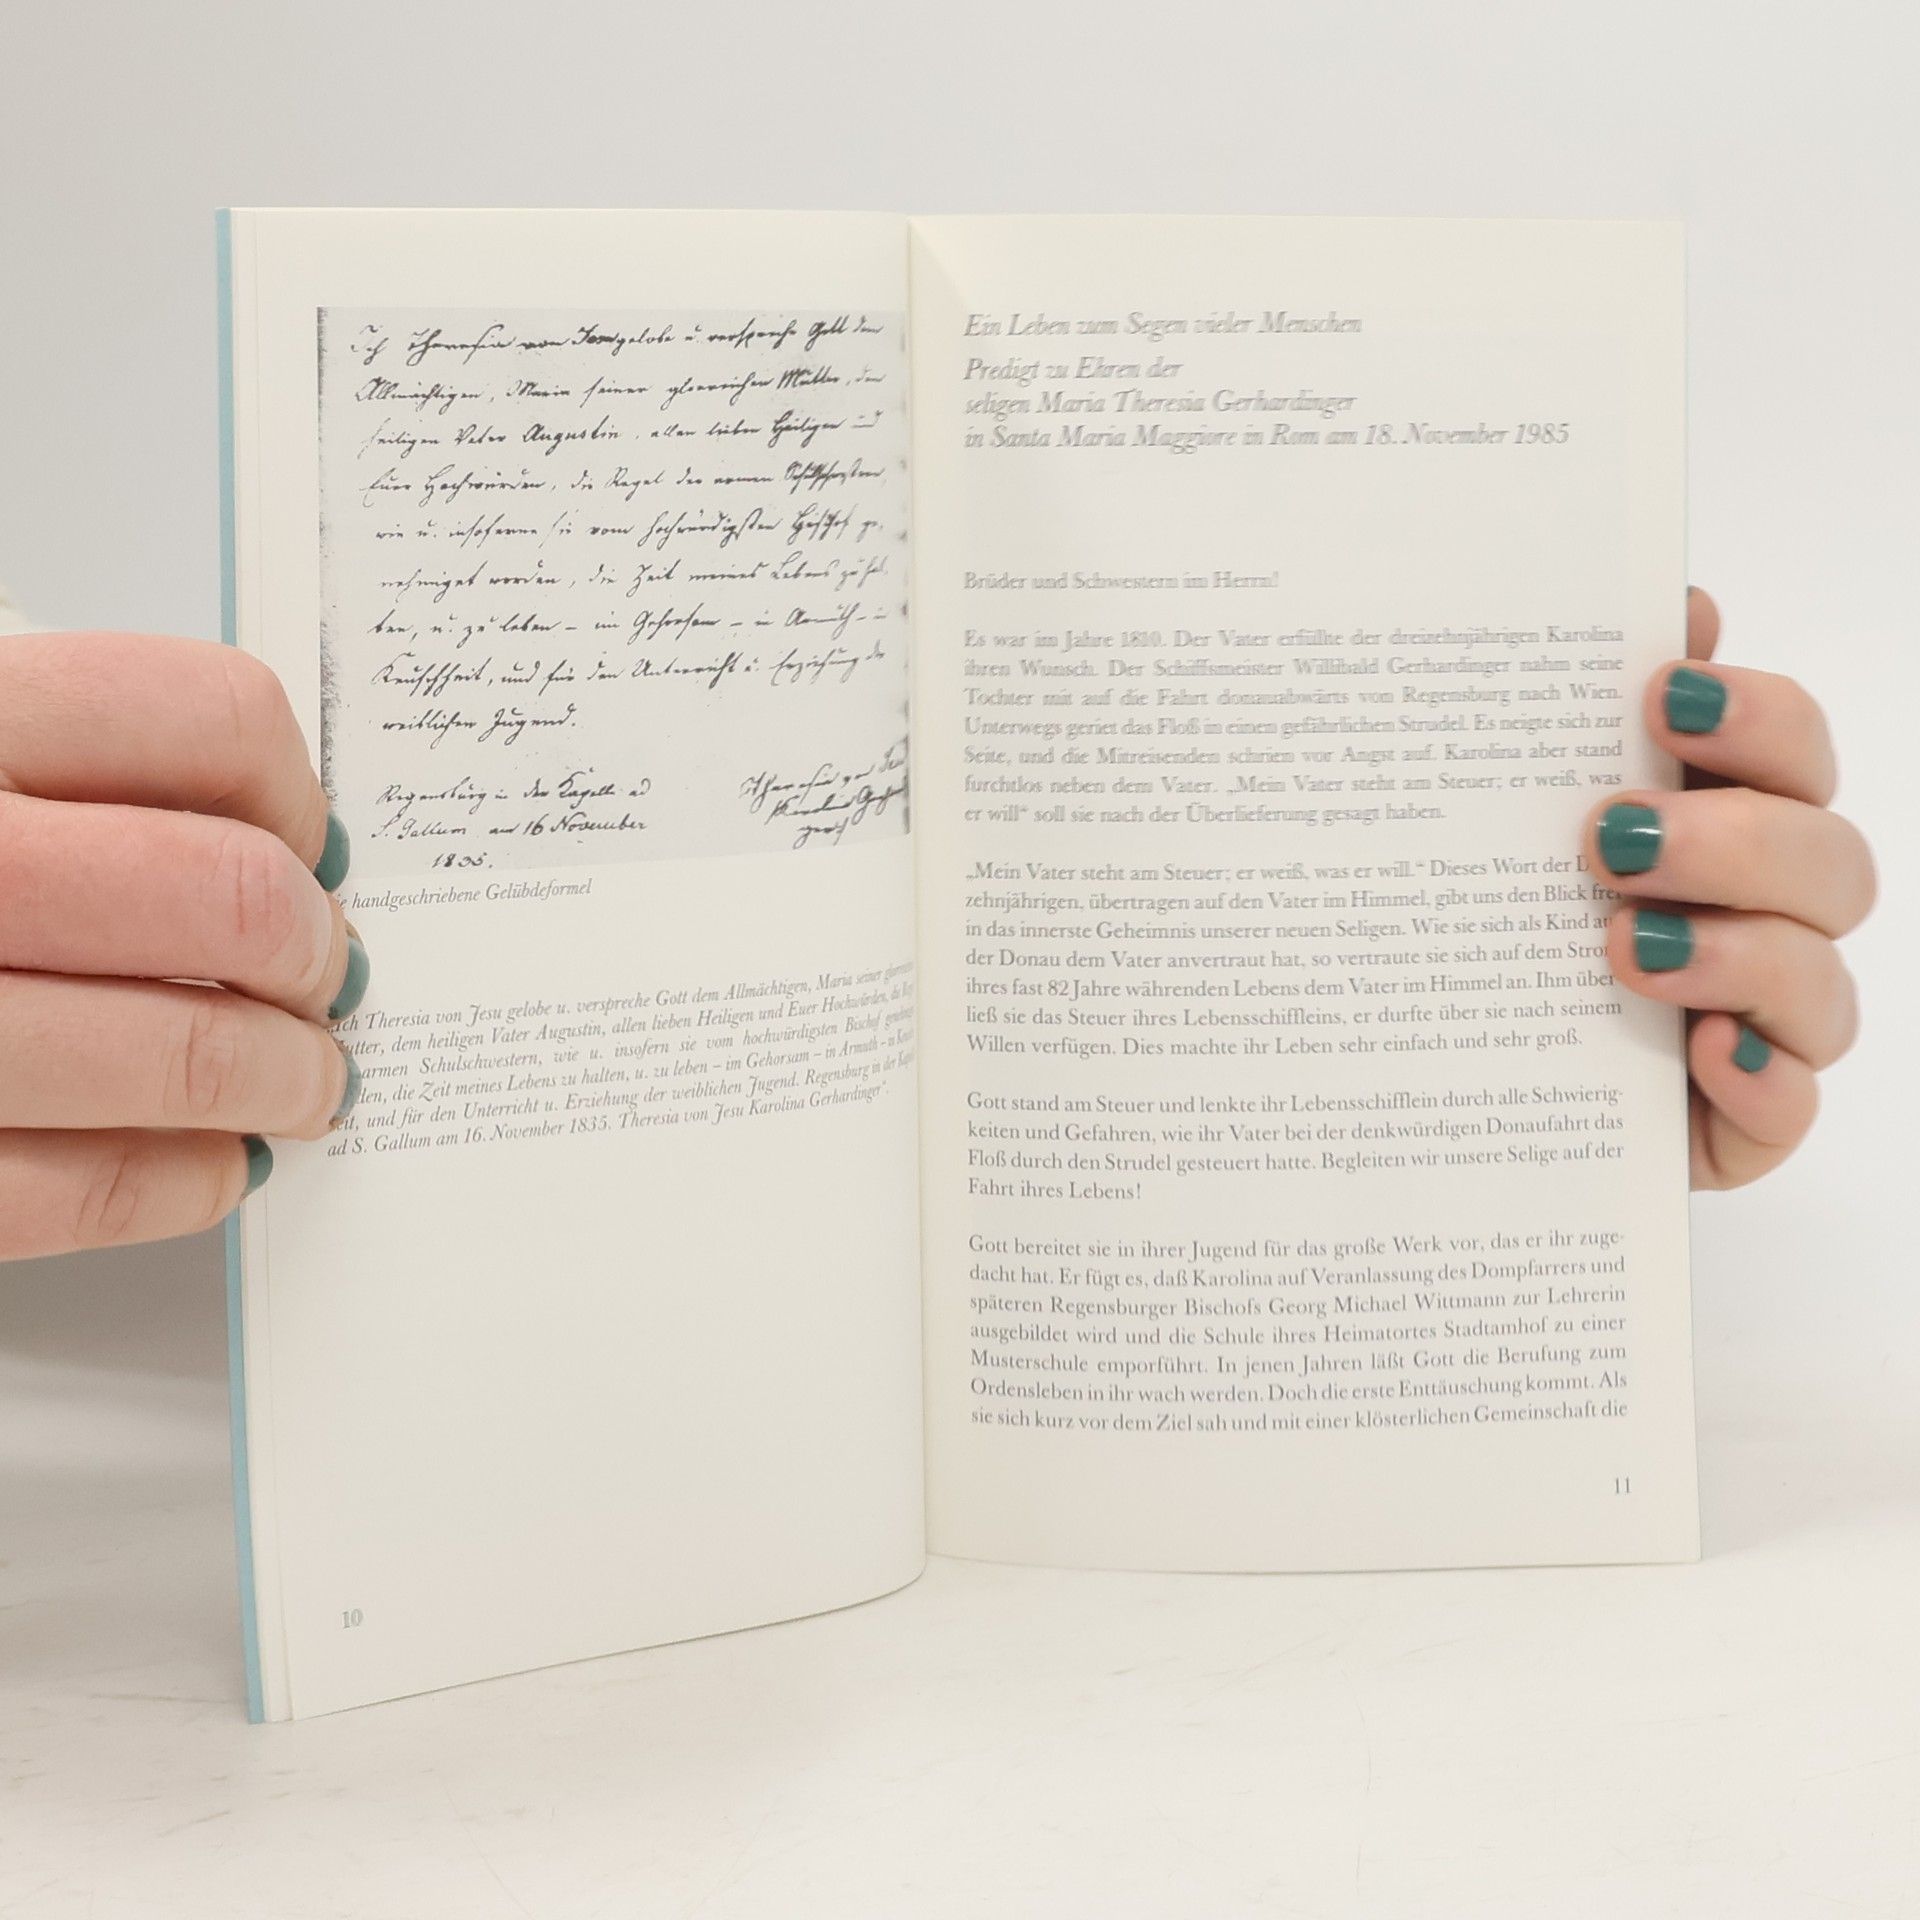 Ich Theresia von Jesu gelobe u. verspreche Gott dem
Allmächtigen, Maria seiner glorreichen Mutter, dem
heiligen Vater Augustin, allen lieben Heiligen und
Euer Hochwürden, die Regel der armen Schulschwestern,
wie u. insoferne sie vom hochwürdigsten Bischof ge-
nehmiget worden, die Zeit meines Lebens zu hal-
ten, u. zu leben – im Gehorsam – in Armuth – in
Keuschheit, und für den Unterricht u. Erziehung der
weiblichen Jugend.
Regensburg in der Kapelle ad
S. Gallum am 16 November
1835.
Theresia von Jesu
Karolina
handgeschriebene Gelübdeformel
„Ich Theresia von Jesu gelobe u. verspreche Gott dem Allmächtigen, Maria seiner
dem heiligen Vater Augustin, allen lieben Heiligen und Euer Hochwürden, die
armen Schulschwestern, wie u. insofern sie vom hochwürdigsten Bischof
die Zeit meines Lebens zu halten, u. zu leben – im Gehorsam – in Armuth – in
und für den Unterricht u. Erziehung der weiblichen Jugend. Regensburg in der
ad S. Gallum am 16. November 1835. Theresia von Jesu Karolina Gerhardinger“.
10
Ein Leben zum Segen vieler Menschen
Predigt zu Ehren der
seligen Maria Theresia Gerhardinger
in Santa Maria Maggiore in Rom am 18. November 1985
Brüder und Schwestern im Herrn!
Es war im Jahre 1810. Der Vater erfüllte der dreizehnjährigen Karolina
ihren Wunsch. Der Schiffsmeister Willibald Gerhardinger nahm seine
Tochter mit auf die Fahrt donauabwärts von Regensburg nach Wien.
Unterwegs geriet das Floß in einen gefährlichen Strudel. Es neigte sich zur
Seite, und die Mitreisenden schrien vor Angst auf. Karolina aber stand
furchtlos neben dem Vater. „Mein Vater steht am Steuer; er weiß, was
er will“ soll sie nach der Überlieferung gesagt haben.
„Mein Vater steht am Steuer; er weiß, was er will.“ Dieses Wort der
zehnjährigen, übertragen auf den Vater im Himmel, gibt uns den Blick frei
in das innerste Geheimnis unserer neuen Seligen. Wie sie sich als Kind auf
der Donau dem Vater anvertraut hat, so vertraute sie sich auf dem Strom
ihres fast 82 Jahre währenden Lebens dem Vater im Himmel an. Ihm über-
ließ sie das Steuer ihres Lebensschiffleins, er durfte über sie nach seinem
Willen verfügen. Dies machte ihr Leben sehr einfach und sehr groß.
Gott stand am Steuer und lenkte ihr Lebensschifflein durch alle Schwierig-
keiten und Gefahren, wie ihr Vater bei der denkwürdigen Donaufahrt das
Floß durch den Strudel gesteuert hatte. Begleiten wir unsere Selige auf der
Fahrt ihres Lebens!
Gott bereitet sie in ihrer Jugend für das große Werk vor, das er ihr zuge-
dacht hat. Er fügt es, daß Karolina auf Veranlassung des Dompfarrers und
späteren Regensburger Bischofs Georg Michael Wittmann zur Lehrerin
ausgebildet wird und die Schule ihres Heimatortes Stadtamhof zu einer
Musterschule emporführt. In jenen Jahren läßt Gott die Berufung zum
Ordensleben in ihr wach werden. Doch die erste Enttäuschung kommt. Als
sie sich kurz vor dem Ziel sah und mit einer klösterlichen Gemeinschaft die
11